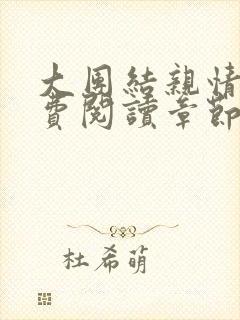 大團結親情
費閱讀章節
杜希萌